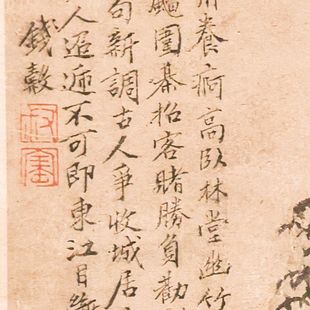 養痾高臥林堂幽竹
圍棊招客賭勝負勸
句新調古人爭收城居
人迢遞不可即東江日
錢穀